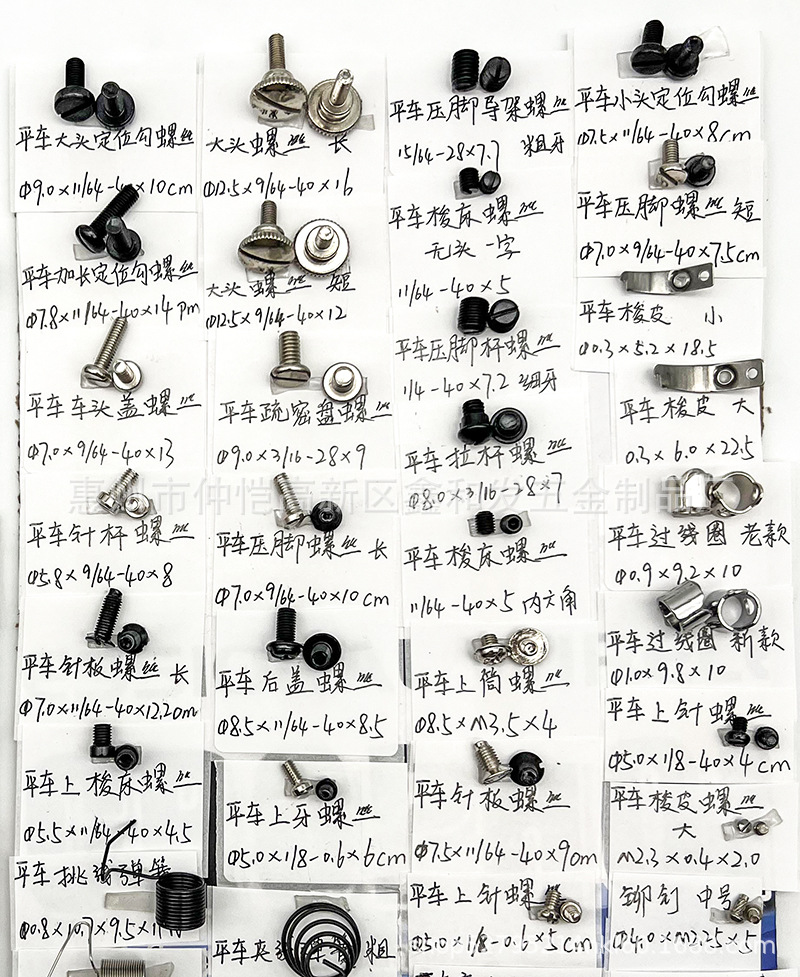 平车大头定位勾螺丝
Φ9.0×11/64-40×10cm
平车加长定位勾螺丝
Φ7.8×11/64-40×14pm
平车车头盖螺丝
Φ7.0×9/64-40×13
平车针杆螺丝
Φ5.8×9/64-40×8
平车针板螺丝 长
Φ7.0×11/64-40×12.20m
平车上梭床螺丝
Φ5.5×11/64×40×4.5
平车挑
Φ0.8×10.7×9.5×
大头螺丝 长
Φ12.5×9/64-40×16
大头螺丝 短
Φ12.5×9/64-40×12
平车疏密盘螺丝
Φ9.0×3/16-28×9
平车压脚螺丝 长
Φ7.0×9/64-40×10cm
平车后盖螺丝
Φ8.5×11/64-40×8.5
平车上牙螺丝
Φ5.0×1/8-0.6×6cm
平车夹 粗
平车压脚导架螺丝
15/64-28×7.7 粗牙
平车梭床螺丝
无头一字
11/64-40×5
平车压脚杆螺丝
1/4-40×7.2 细牙
平车拉杆螺丝
Φ8.0×3/16-28×7
平车梭床螺丝
11/64-40×5内六角
平车上筒螺丝
Φ8.5×M3.5×4
平车针板螺丝
Φ7.5×11/64-40×90m
平车上针螺丝
Φ5.0×1/8-0.6×5cm
平车小头定位勾螺丝
Φ7.5×11/64-40×8cm
平车压脚螺丝 短
Φ7.0×9/64-40×7.5cm
平车梭皮 小
Φ0.3×5.2×18.5
平车梭皮 大
0.3×6.0×22.5
平车过线圈 老款
Φ0.9×9.2×10
平车过线圈 新款
Φ1.0×9.8×10
平车上针螺丝
Φ5.0×1/8-40×4cm
平车梭皮螺丝
大
M2.3×0.4×2.0
铆钉 中号
Φ4.0×M2.25×5
惠州市仲恺高新区鑫和发五金制品厂